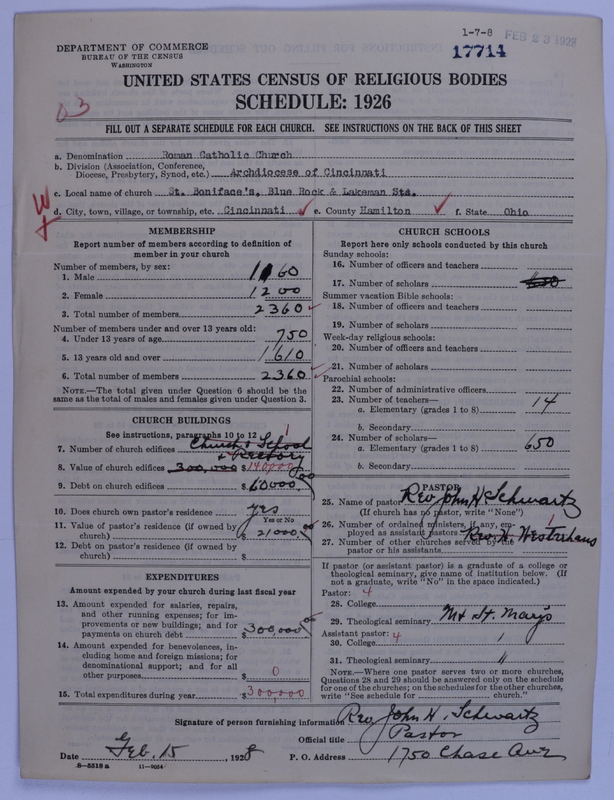 1-7-8 FEB 23 1928
17714
DEPARTMENT OF COMMERCE
BUREAU OF THE CENSUS
WASHINGTON
UNITED STATES CENSUS OF RELIGIOUS BODIES
SCHEDULE: 1926
FILL OUT A SEPARATE SCHEDULE FOR EACH CHURCH. SEE INSTRUCTIONS ON THE BACK OF THIS SHEET
a. Denomination Roman Catholic Church
b. Division (Association, Conference,
Diocese, Presbytery, Synod, etc.) Archdiocese of Cincinnati
c. Local name of church St. Boniface's, Blue Rock & Lakeman Sts.
d. City, town, village, or township, etc. Cincinnati e. County Hamilton f. State Ohio
MEMBERSHIP
Report number of members according to definition of
member in your church
Number of members, by sex:
1. Male 1160
2. Female 1200
3. Total number of members 2360
Number of members under and over 13 years old:
4. Under 13 years of age 750
5. 13 years old and over 1610
6. Total number of members 2360
NOTE.—The total given under Question 6 should be the
same as the total of males and females given under Question 3.
CHURCH BUILDINGS
See instructions, paragraphs 10 to 12
7. Number of church edifices Church & School 1
& Rectory
8. Value of church edifices 300,000 $ 140000
9. Debt on church edifices $ 60000.00
10. Does church own pastor's residence yes
Yes or No
11. Value of pastor's residence (if owned by
church) $ 21000.00
12. Debt on pastor's residence (if owned by
church) $
EXPENDITURES
Amount expended by your church during last fiscal year
13. Amount expended for salaries, repairs,
and other running expenses; for im-
provements or new buildings; and for
payments on church debt $ 300,000
14. Amount expended for benevolences, in-
cluding home and foreign missions; for
denominational support; and for all
other purposes $ 0
15. Total expenditures during year $ 300000
CHURCH SCHOOLS
Report here only schools conducted by this church
Sunday schools:
16. Number of officers and teachers
17. Number of scholars 650
Summer vacation Bible schools:
18. Number of officers and teachers
19. Number of scholars
Week-day religious schools:
20. Number of officers and teachers
21. Number of scholars
Parochial schools:
22. Number of administrative officers
23. Number of teachers—
a. Elementary (grades 1 to 8) 14
b. Secondary
24. Number of scholars—
a. Elementary (grades 1 to 8) 650
b. Secondary
PASTOR
25. Name of pastor Rev. John H. Schwartz
(If church has no pastor, write "None")
26. Number of ordained ministers, if any, em-
ployed as assistant pastors Rev. H. Westrhaus 1
27. Number of other churches served by the
pastor or his assistants
If pastor (or assistant pastor) is a graduate of a college or
theological seminary, give name of institution below. (If
not a graduate, write "No" in the space indicated.)
Pastor: 4
28. College
29. Theological seminary Mt St. Mary's
Assistant pastor: 4
30. College
31. Theological seminary "
NOTE.—Where one pastor serves two or more churches,
Questions 28 and 29 should be answered only on the schedule
for one of the churches; on the schedules for the other churches,
write "See schedule for church."
Signature of person furnishing information Rev. John H. Schwartz
Official title Pastor
Date Feb. 15, 1928 P. O. Address 1750 Chase Ave
8-5518 a 11-9034